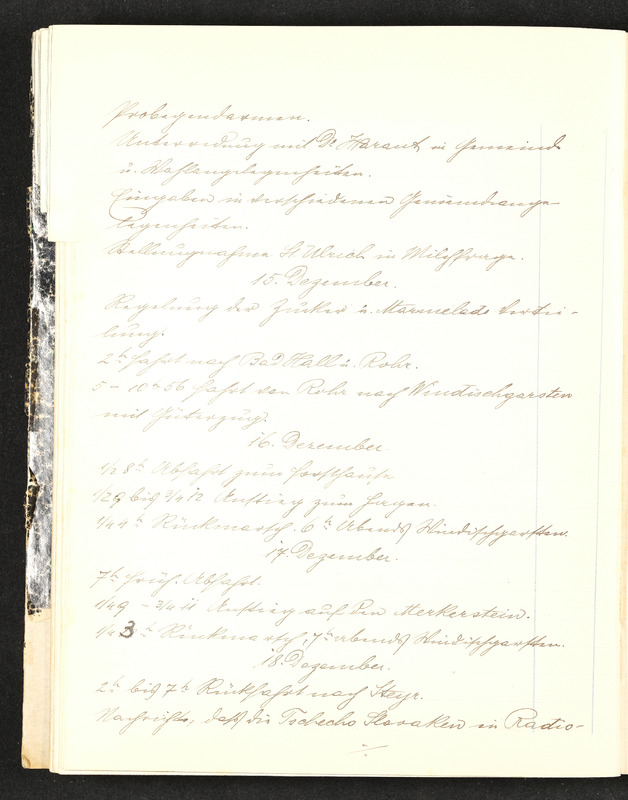 Probegendarmen.
Unterredung mit Dr Harant in Gemeind
u. Wahlangelegenheiten.
Eingaben in verschiedenen Gemeindeange-
legenheiten.
Stellungnahme St Ulrich in Milchfrage.
15. Dezember.
Regelung der Zucker u. Marmelade Vertei-
lung.
2h Fahrt nach Bad Hall u. Rohr.
5 – 10h 56 Fahrt von Rohr nach Windischgarsten
mit Güterzug.
16. Dezember
1/2 8h Abfahrt zum Forsthause
1/2 9 bis 3/4 12 Anstieg zum Jagen.
1/4 4h Rückmarsch. 6h Abends Windischgarsten.
17. Dezember.
7h Früh. Abfahrt.
1/4 9 – 3/4 11 Anstieg auf den Merkerstein.
1/4 3h Rückmarsch, 7h abends Windischgarsten.
18. Dezember.
2h bis 7h Rückfahrt nach Steyr.
Nachricht, daß die Tschecho Slovaken in Radio-